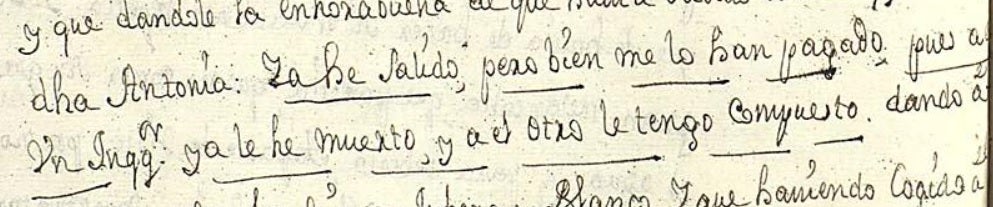 y que dandole la enhorabuena de que
dha Antonia: Ya he salido, pero bien me lo han pagado, pues a
Vn Inqq.or ya le he muerto, y a el otro le tengo Compuesto. dando a
Blanco Y que haviendo Cogido a